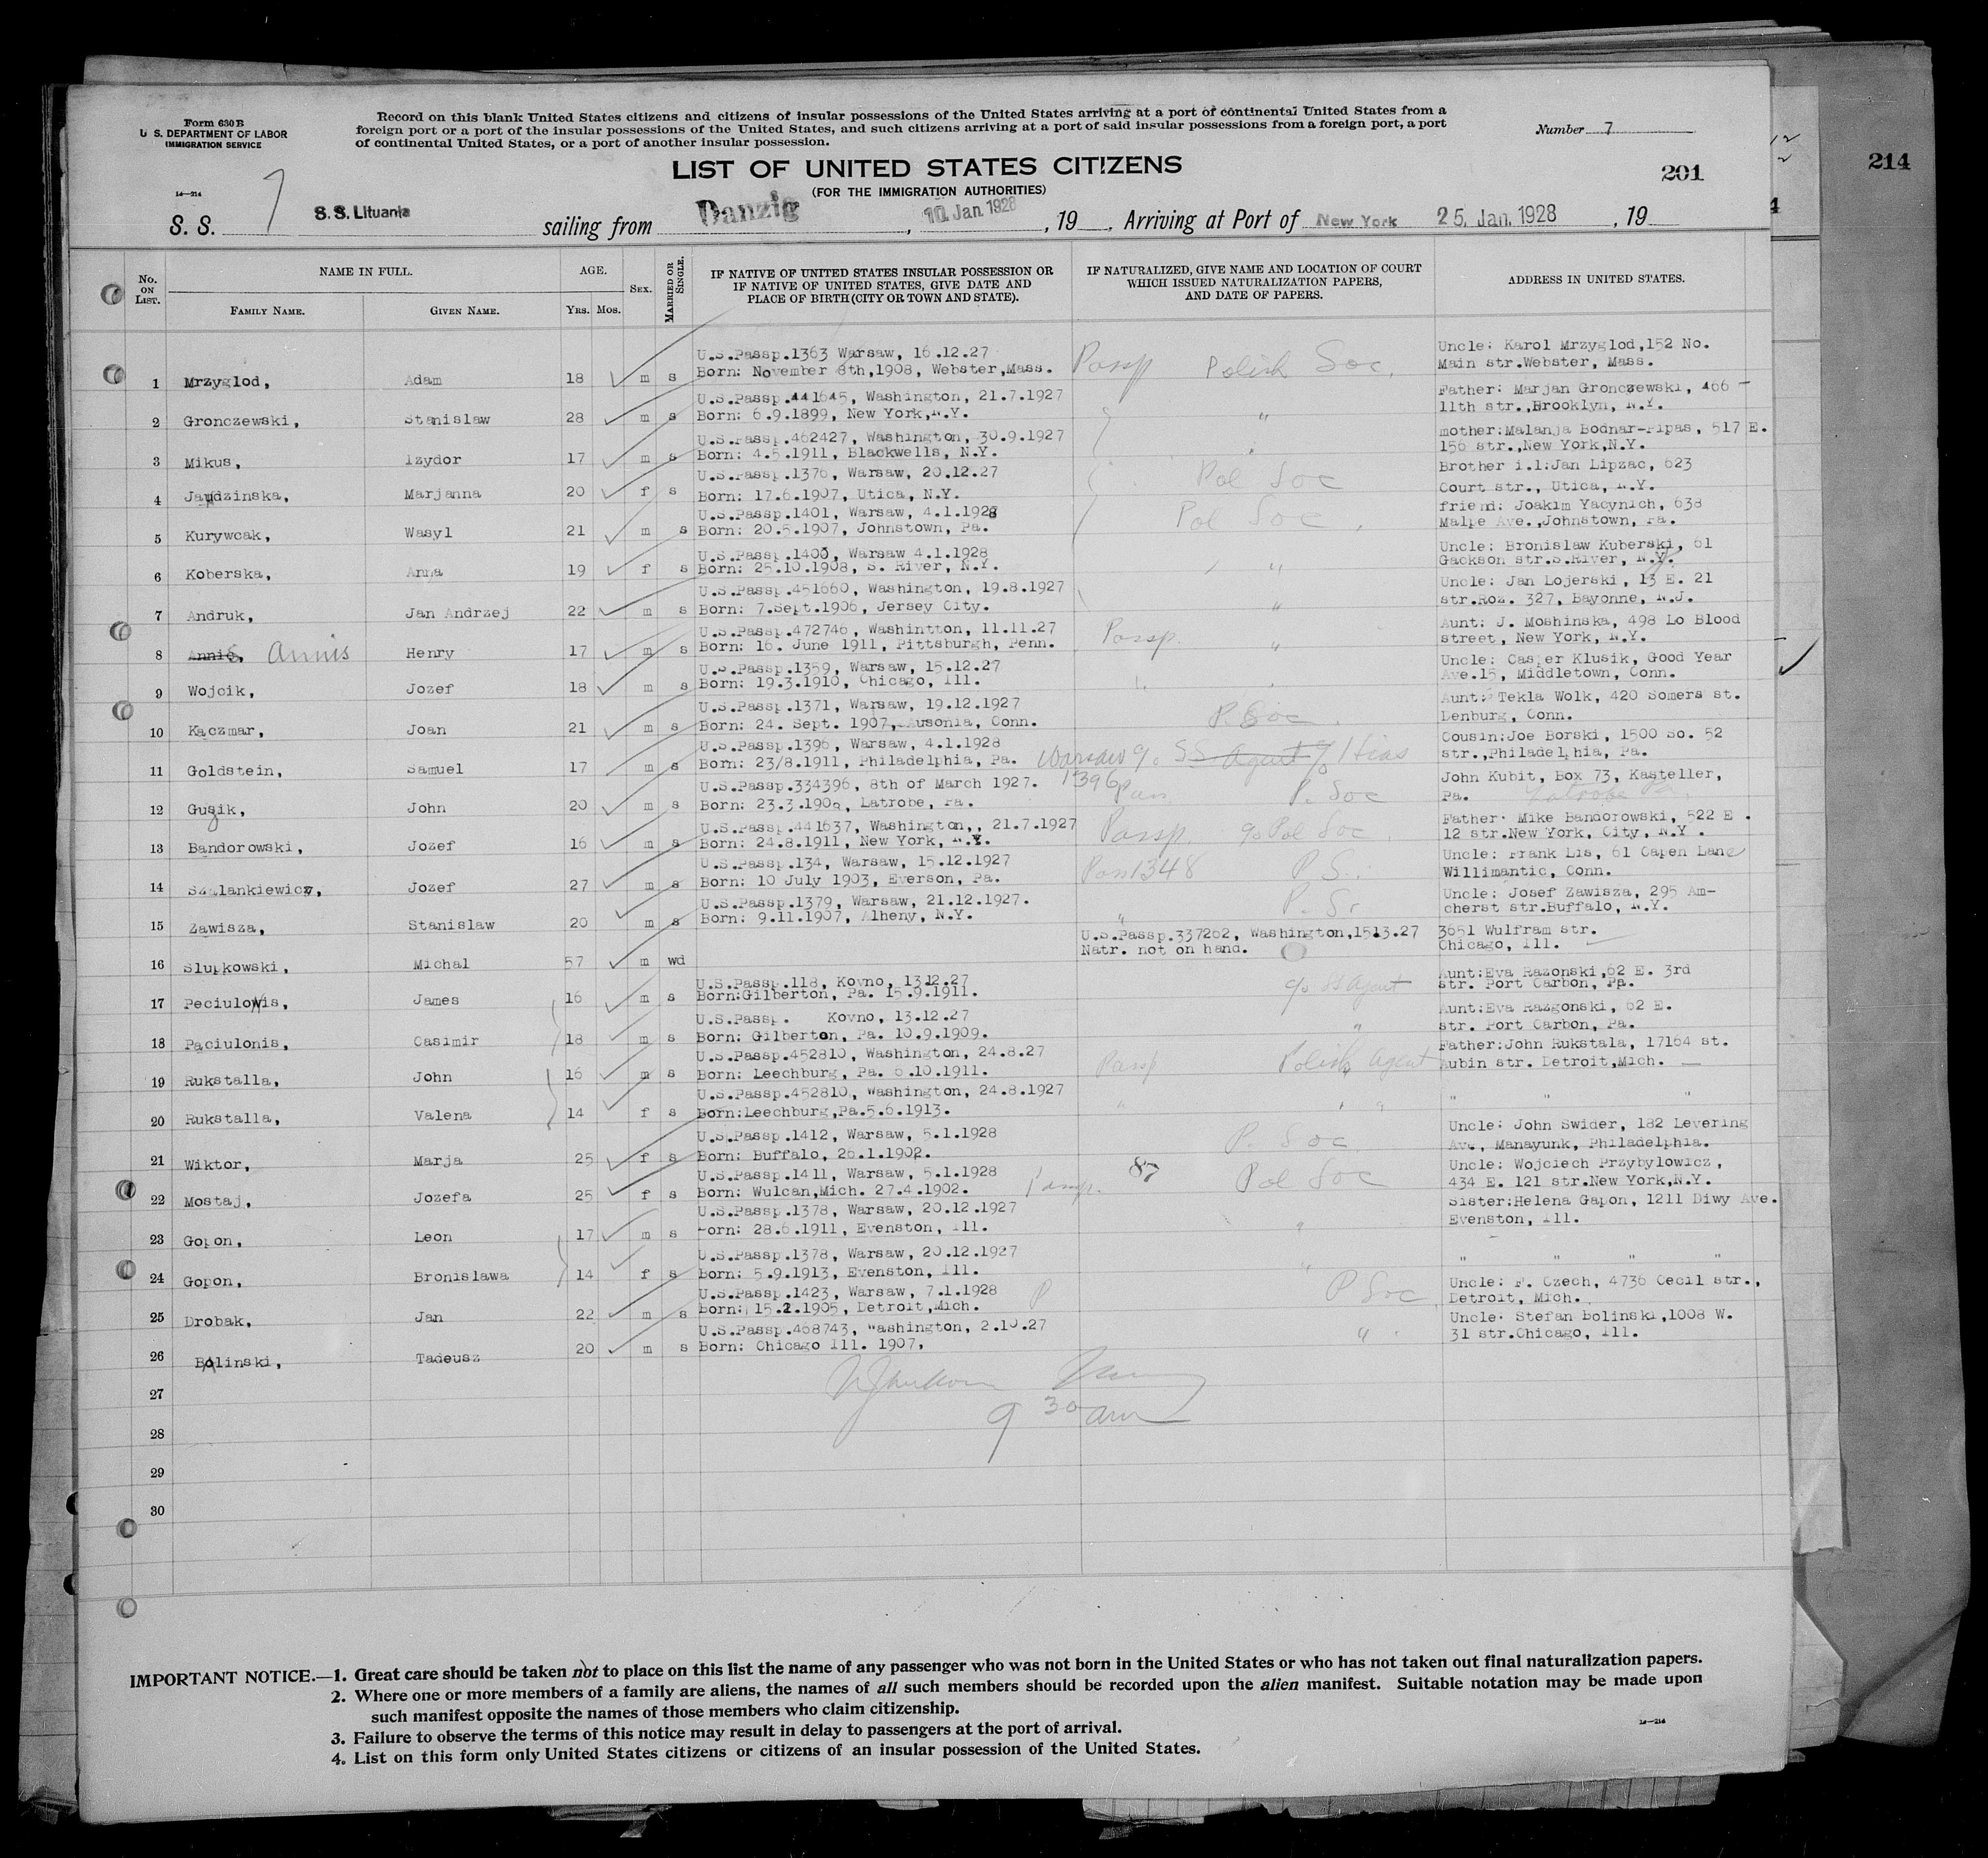 Form 630 B
U. S. DEPARTMENT OF LABOR
IMMIGRATION SERVICE
Record on this blank United States citizens and citizens of insular possessions of the United States arriving at a port of continental United States from a
foreign port or a port of the insular possessions of the United States, and such citizens arriving at a port of said insular possessions from a foreign port, a port
of continental United States, or a port of another insular possession.
Number 7
LIST OF UNITED STATES CITIZENS
(FOR THE IMMIGRATION AUTHORITIES)
201
214
14—214
7
S. S. S.S. Lituania sailing from Danzig, 10. Jan. 1928, 19 , Arriving at Port of New York 25. Jan. 1928, 19
No. ON LIST.
NAME IN FULL.
FAMILY NAME. GIVEN NAME.
AGE.
YRS. MOS.
SEX.
MARRIED OR SINGLE.
IF NATIVE OF UNITED STATES INSULAR POSSESSION OR
IF NATIVE OF UNITED STATES, GIVE DATE AND
PLACE OF BIRTH (CITY OR TOWN AND STATE).
IF NATURALIZED, GIVE NAME AND LOCATION OF COURT
WHICH ISSUED NATURALIZATION PAPERS,
AND DATE OF PAPERS.
ADDRESS IN UNITED STATES.
U.S.Passp.1363 Warsaw, 16.12.27 Uncle: Karol Mrzyglod,152 No.
1 Mrzyglod, Adam 18 m s Born: November 8th,1908, Webster,Mass. Passp Polish Soc. Main str.Webster, Mass.
U.S.Passp.441645, Washington, 21.7.1927 Father: Marjan Gronczewski, 466 -
2 Gronczewski, Stanislaw 28 m s Born: 6.9.1899, New York,N.Y. " 11th str.,Brooklyn, N.Y.
U.S.Passp.462427, Washington, 30.9.1927 mother:Malanja Bodnar-Pipas, 517 E.
3 Mikus, Izydor 17 m s Born: 4.5.1911, Blackwells, N.Y. 156 str.,New York,N.Y.
U.S.Passp.1376, Warsaw, 20.12.27 Brother i.l:Jan Lipzac, 623
4 Jaudzinska, Marjanna 20 f s Born: 17.6.1907, Utica, N.Y. Pol Soc Court str., Utica, N.Y.
U.S.Passp.1401, Warsaw, 4.1.1928 friend: Joakim Yacynich, 638
5 Kurywcak, Wasyl 21 m s Born: 20.5.1907, Johnstown, Pa. Pol Soc. Malpe Ave.,Johnstown, Pa.
U.S.Passp.1400, Warsaw 4.1.1928 Uncle: Bronislaw Kuberski, 61
6 Koberska, Anna 19 f s Born: 25.10.1908, S. River, N.Y. " Gackson str.S.River, N.Y.
U.S.Passp.451660, Washington, 19.8.1927 Uncle: Jan Lojerski, 13 E. 21
7 Andruk, Jan Andrzej 22 m s Born: 7.Sept.1906, Jersey City. " str.Roz. 327, Bayonne, N.J.
U.S.Passp.472746, Washintton, 11.11.27 Aunt: J. Moshinska, 498 Lo Blood
8 Annis, Annis Henry 17 m s Born: 16. June 1911, Pittsburgh, Penn. Passp. " street, New York, N.Y.
U.S.Passp.1359, Warsaw, 15.12.27 Uncle: Casper Klusik, Good Year
9 Wojcik, Jozef 18 m s Born: 19.3.1910, Chicago, Ill. Ave.15, Middletown, Conn.
U.S.Passp.1371, Warsaw, 19.12.1927 Aunt: Tekla Wolk, 420 Somers st.
10 Kaczmar, Joan 21 m s Born: 24. Sept. 1907, Ausonia, Conn. P. Soc. Denburg, Conn.
U.S.Passp.1396, Warsaw, 4.1.1928 Cousin:Joe Borski, 1500 So. 52
11 Goldstein, Samuel 17 m s Born: 23/8.1911, Philadelphia, Pa. Warsaw c/o SS Agent c/o Hias str.,Philadelphia, Pa.
U.S.Passp.334396, 8th of March 1927. 1396 John Kubit, Box 73, Kasteller,
12 Guzik, John 20 m s Born: 23.3.1908, Latrobe, Pa. Pass P. Soc Pa. Latrobe Pa.
U.S.Passp.441637, Washington,, 21.7.1927 Father: Mike Bandorowski, 522 E.
13 Bandorowski, Jozef 16 m s Born: 24.8.1911, New York, N.Y. Passp. c/o Pol Soc. 12 str.New York, City, N.Y.
U.S.Passp.134, Warsaw, 15.12.1927 Uncle: Frank Lis, 61 Capen Lane
14 Szalankiewicz, Jozef 27 m s Born: 10 July 1903, Everson, Pa. Pass 1348 P. S. Willimantic, Conn.
U.S.Passp.1379, Warsaw, 21.12.1927. Uncle: Josef Zawisza, 295 Am-
15 Zawisza, Stanislaw 20 m s Born: 9.11.1907, Alheny, N.Y. " cherst str.Buffalo, N.Y.
U.S.Passp.337262, Washington,1513.27 3651 Wulfram str.
16 Slupkowski, Michal 57 m wd Natr. not on hand. Chicago, Ill.
U.S.Passp.118, Kovno, 1312.27 Aunt:Eva Razonski,62 E. 3rd
17 Peciulonis, James 16 m s Born:Gilberton, Pa. 15.9.1911. c/o SS Agent str. Port Carbon, Pa.
U.S.Passp. Kovno, 13.12.27 Aunt:Eva Razgonski, 62 E.
18 Paciulonis, Casimir 18 m s Born: Gilberton, Pa. 10.9.1909. " str. Port Carbon, Pa.
U.S.Passp.452810, Washington, 24.8.27 Father:John Rukstala, 17164 st.
19 Rukstalla, John 16 m s Born: Leechburg, Pa. 6.10.1911. Passp Polish Agent Aubin str. Detroit,Mich.
U.S.Passp.452810, Washington, 24.8.1927 " " "
20 Rukstalla, Valena 14 f s Born:Leechburg,Pa.5.6.1913. " "
U.S.Passp.1412, Warsaw, 5.1.1928 Uncle: John Swider, 182 Levering
21 Wiktor, Marja 25 f s Born: Buffalo, 26.1.1902. P. Soc Ave, Manayunk, Philadelphia.
U.S.Passp.1411, Warsaw, 5.1.1928 87 Uncle: Wojciech Przybylowicz,
22 Mostaj, Jozefa 25 f s Born: Wulcan,Mich. 27.4.1902. Passp. Pol Soc 434 E. 121 str.New York,N.Y.
U.S.Passp.1378, Warsaw, 20.12.1927 Sister:Helena Gapon, 1211 Diwy Ave.
23 Gopon, Leon 17 m s Born: 28.6.1911, Evenston, Ill. " Evenston, Ill.
U.S.Passp.1378, Warsaw, 20.12.1927 " " " "
24 Gopon, Bronislawa 14 f s Born: 5.9.1913, Evenston, Ill. "
U.S.Passp.1423, Warsaw, 7.1.1928 P P Soc Uncle: F. Czech, 4736 Cecil str.,
25 Drobak, Jan 22 m s Born: 15.2.1905, Detroit,Mich. Detroit, Mich.
U.S.Passp.468743, Washington, 2.10.27 Uncle: Stefan Bolinski,1008 W.
26 Bolinski, Tadeusz 20 m s Born: Chicago Ill. 1907, " 31 str.Chicago, Ill.
27
28 9 30 am
29
30
IMPORTANT NOTICE.—1. Great care should be taken not to place on this list the name of any passenger who was not born in the United States or who has not taken out final naturalization papers.
2. Where one or more members of a family are aliens, the names of all such members should be recorded upon the alien manifest. Suitable notation may be made upon
such manifest opposite the names of those members who claim citizenship.
3. Failure to observe the terms of this notice may result in delay to passengers at the port of arrival.
4. List on this form only United States citizens or citizens of an insular possession of the United States.
14—214